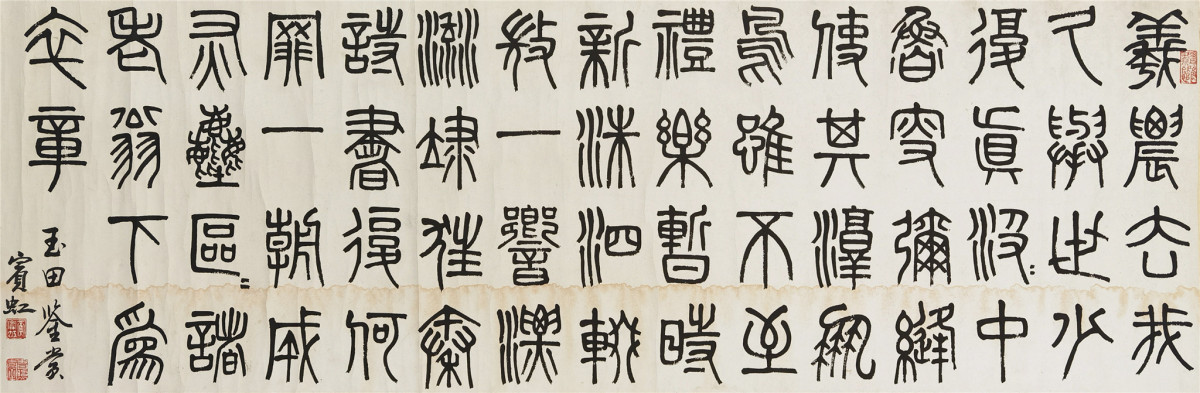 羲農去我
久舉世少
復真汲〻中
魯叟彌縫
使其淳鳳
鳥雖不至
禮樂暫時
新洙泗輟
微一響漂
流逮狂秦
詩書復何
罪一朝成
灰塵區〻諸
老翁下為
卒章
玉田鑒賞
賓虹